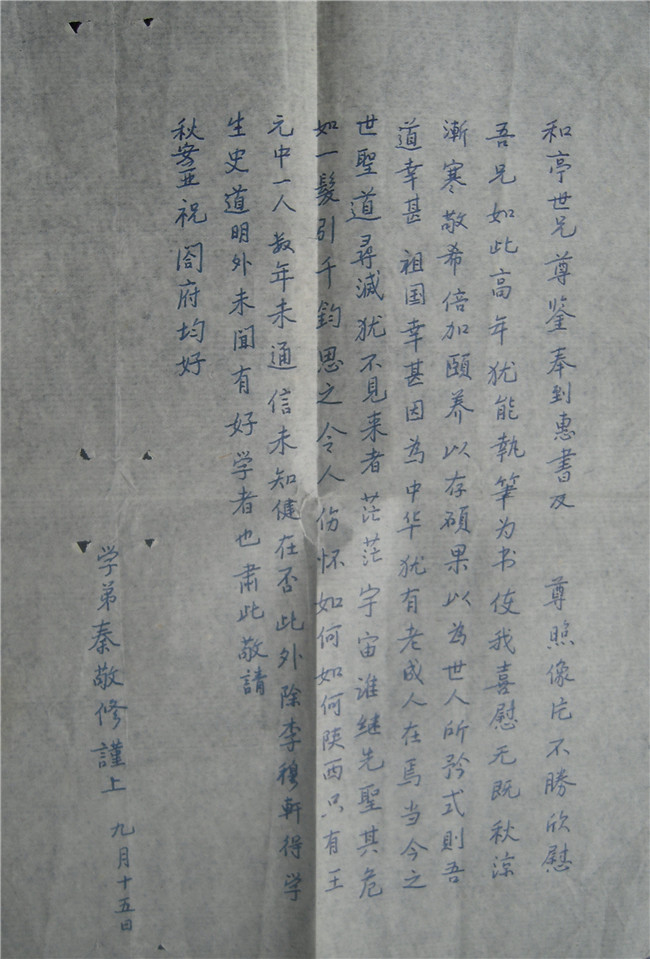 和亭世兄尊鉴奉到惠書及 尊照像片不勝欣慰
吾兄如此高年犹能執筆为书使我喜慰无既秋涼
漸寒敬希倍加頤养以存碩果以為世人所矜式則吾
道幸甚 祖国幸甚因為中华犹有老成人在焉当今之
世聖道尋滅犹不見来者茫茫宇宙谁继先聖其危
如一髮引千鈞思之令人伤怀如何如何陕西只有王
元中一人数年未通信未知健在否此外除李穆軒得学
生史道明外未聞有好学者也肃此敬請
秋安亚祝阁府均好
学弟秦敬修謹上 九月十五日